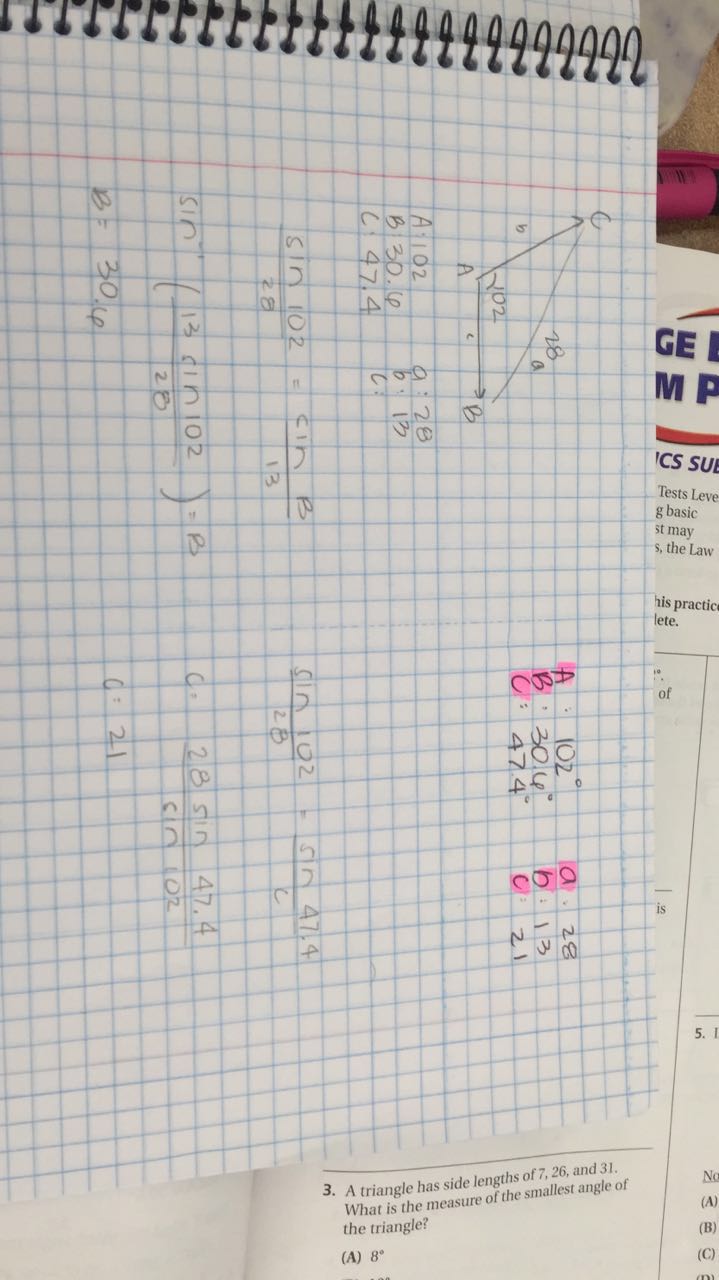 C
b
28
a
A
102
c
B
A: 102 a: 28
B: 30.6 b: 13
C: 47.4 c:
sin 102 / 28 = sin B / 13
sin⁻¹ ( 13 sin 102 / 28 ) = B
B = 30.6
A : 102° a : 28
B : 30.6° b : 13
C : 47.4° c : 21
sin 102 / 28 = sin 47.4 / c
c = 28 sin 47.4 / sin 102
c = 21
GE
M P
ICS SUB
Tests Leve
g basic
st may
s, the Law
his practice
lete.
of
is
5. I
3. A triangle has side lengths of 7, 26, and 31.
What is the measure of the smallest angle of
the triangle?
(A) 8°
No
(A)
(B)
(C)